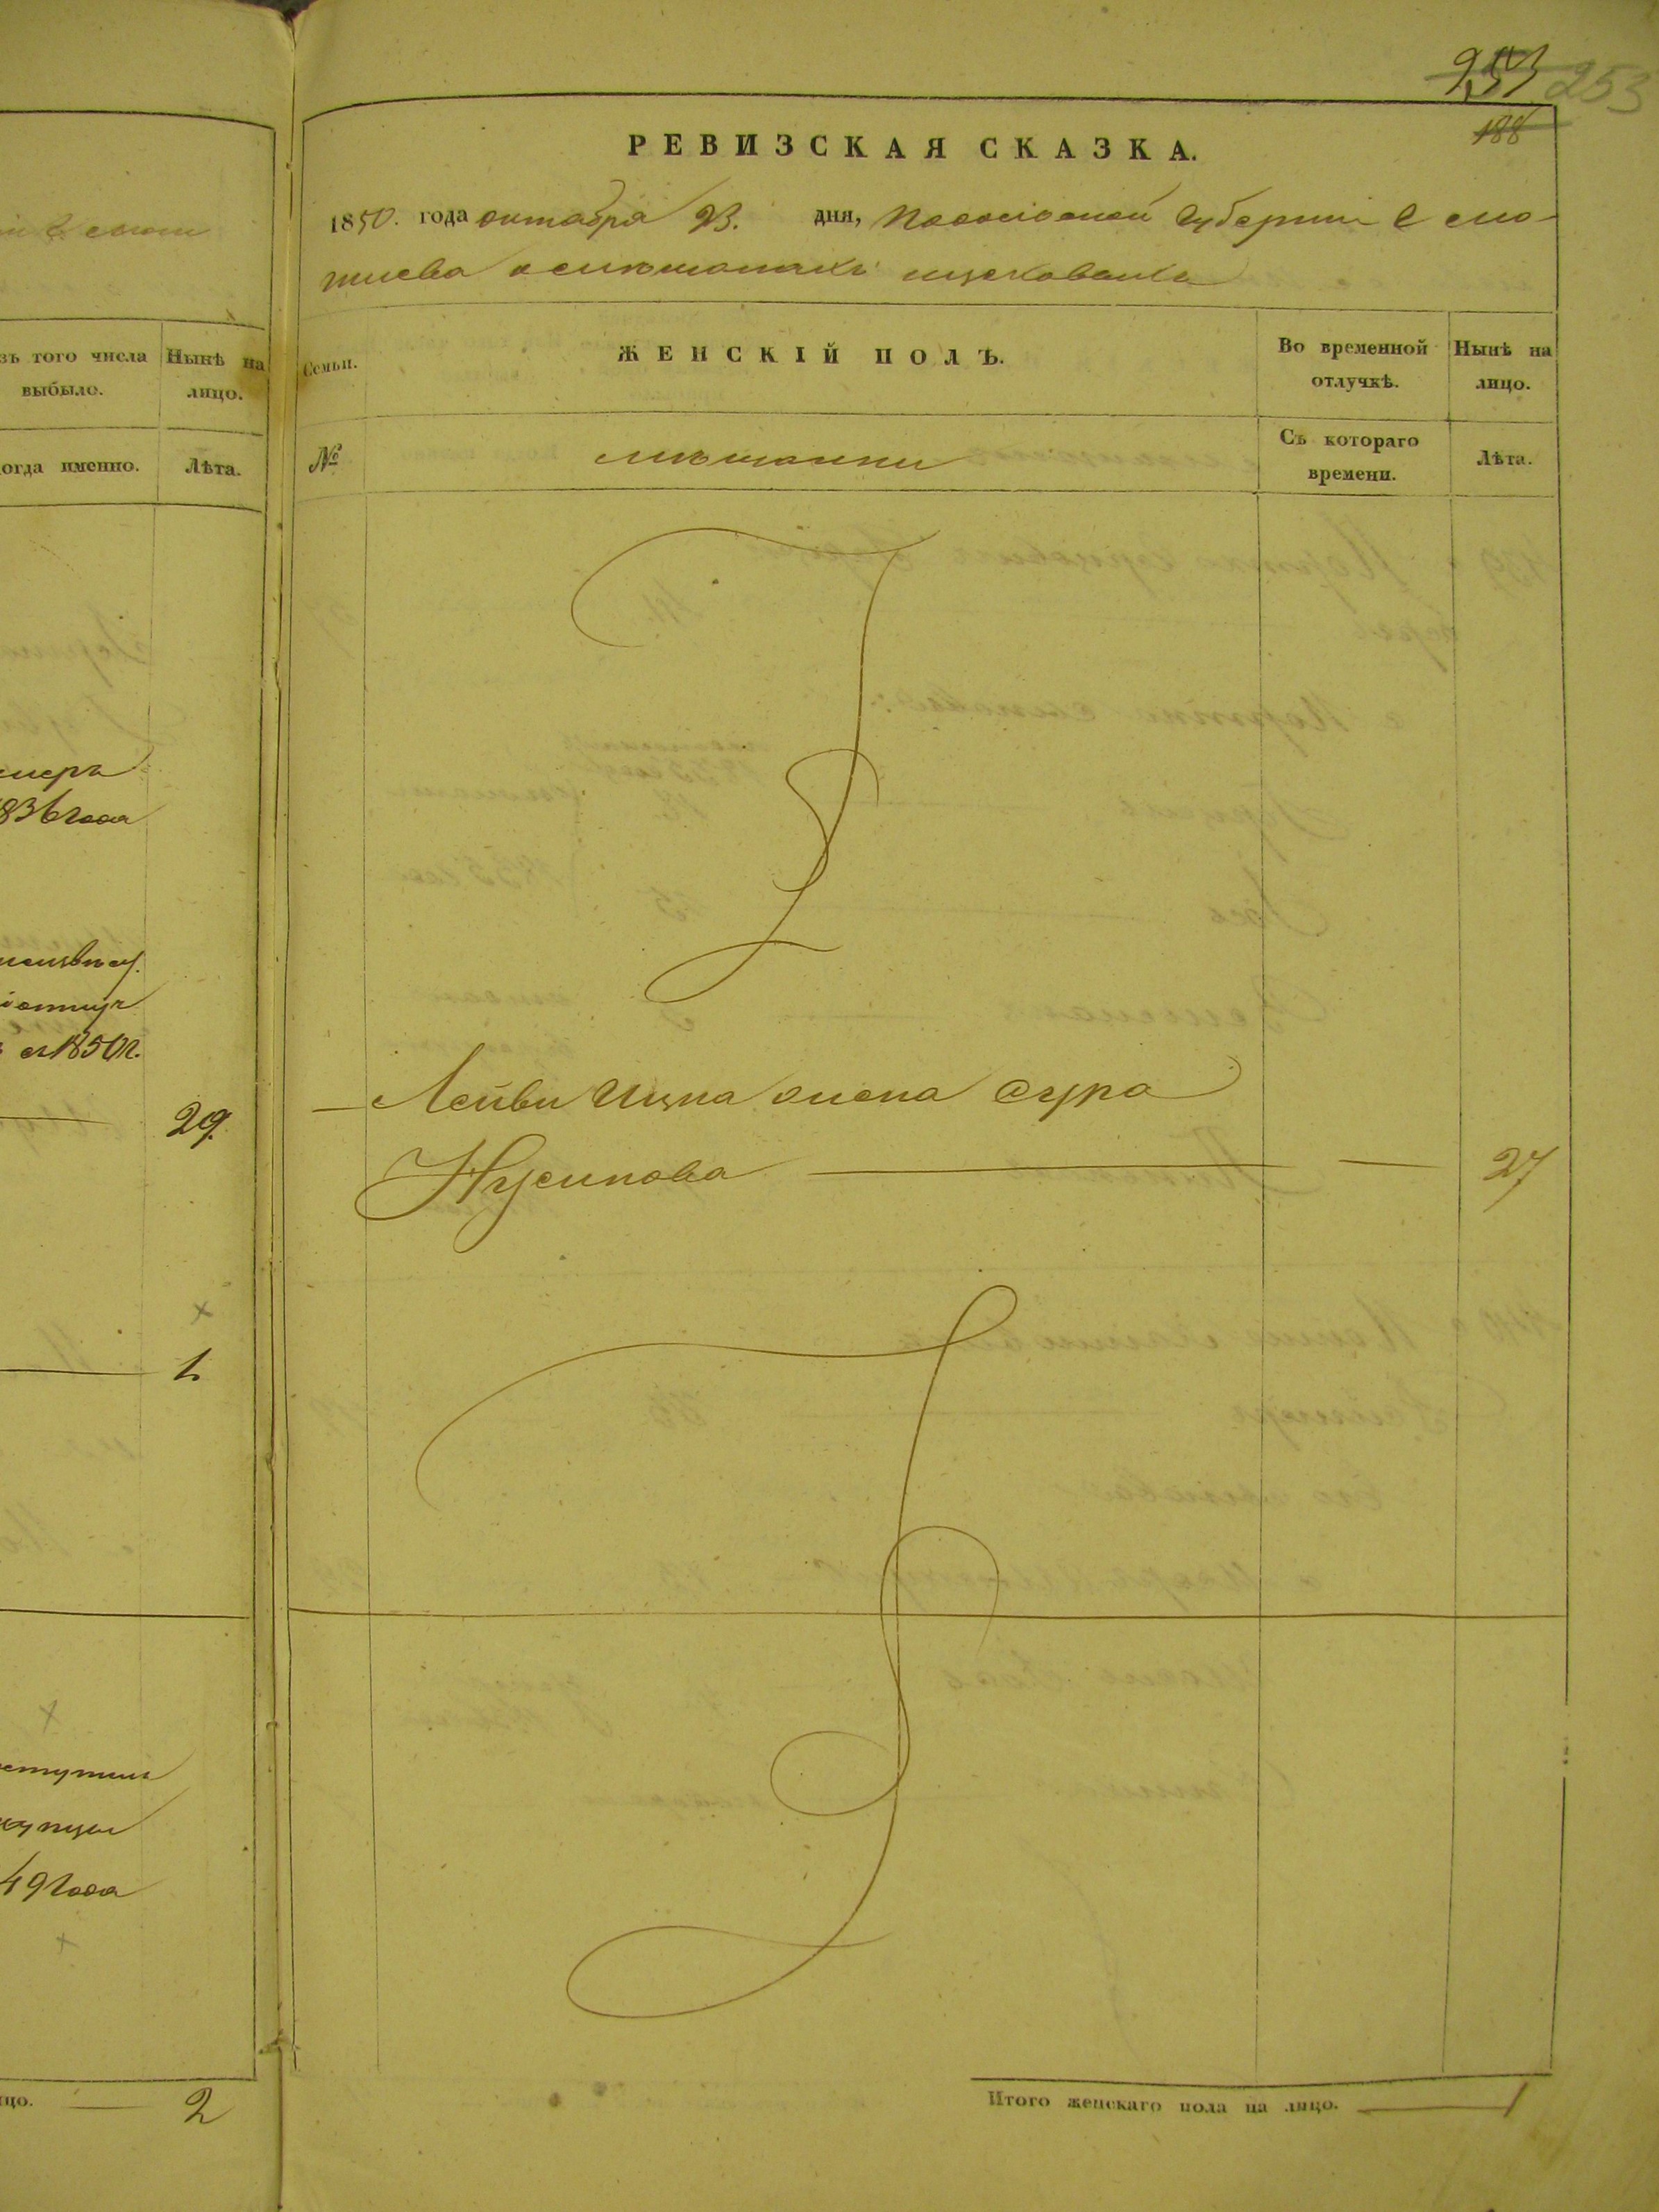 253
188
РЕВИЗСКАЯ СКАЗКА.
1850. года октября 23. дня, Подольской Губернии
о мещанахъ
зъ того числа
выбыло.
Нынѣ на
лицо.
Семьи.
ЖЕНСКІЙ ПОЛЪ.
Во временной
отлучкѣ.
Нынѣ на
лицо.
огда именно.
Лѣта.
№
мещанки
Съ котораго
времени.
Лѣта.
умеръ
836 года
съ 1850 г.
29.
Лейви Ицка жена Сура
Нусинова 27
1
купцы
49 года
цо. 2
Итого женскаго пола на лицо. 1